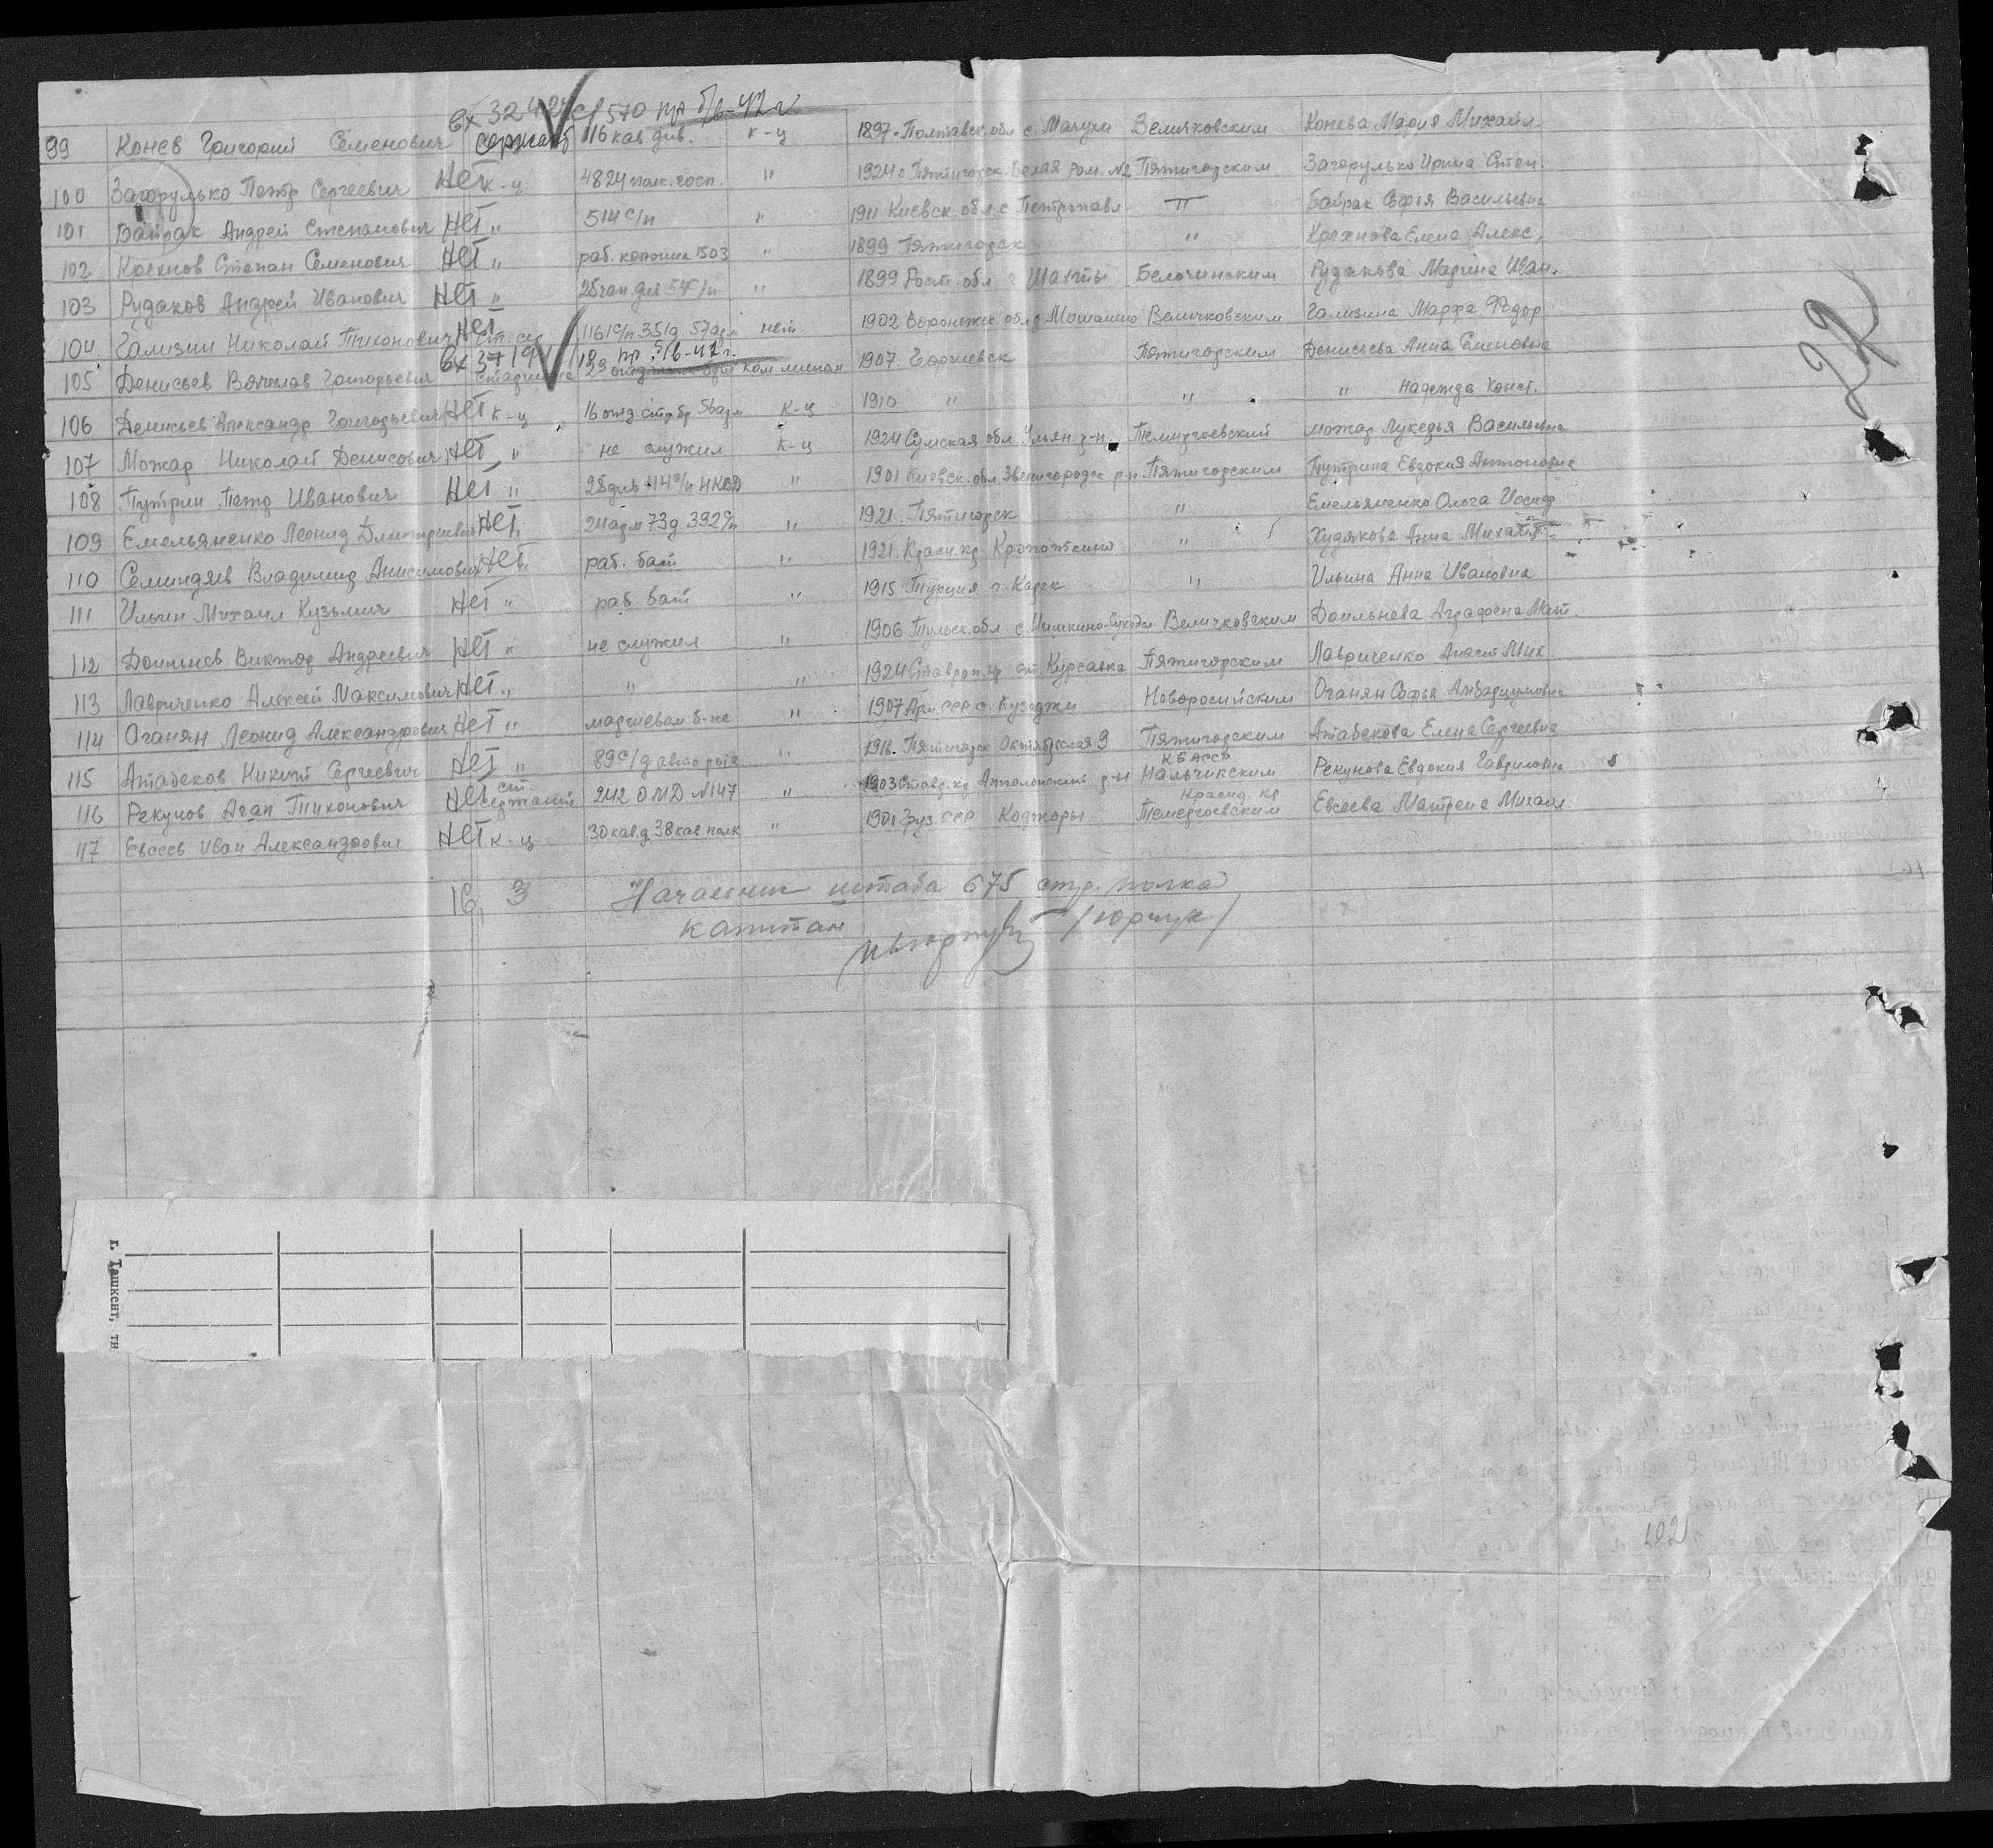 вх 32424с/570 пр б/в-42 г
99 Конев Григорий Семенович сержант 116 кав див. к-ц 1897. Полтавск. обл с. Мачухи Величковским Конева Мария Михайл.
100 Загорулько Петр Сергеевич Нет к-ц 4824 полк. госп. " 1924 г Пятигорск. Белая Ром. №2 Пятигорским Загорулько Ирина Степ.
101 Байрак Андрей Степанович Нет " 514 с/п " 1911 Киевск. обл. с Петропавл. П Байрак Софья Васильевна
102 Крехнов Степан Семенович Нет " раб. колонна 1503 " 1899 Пятигорск " Крехнова Елена Алекс.
103 Рудаков Андрей Иванович Нет " " 1899 Рост. обл г Шахты Белочинским Рудакова Марина Иван.
104 Гализин Николай Тихонович Нет ст. с-т 1161 с/п 351 д. 57 арм нет. 1902 Воронежск. обл д Величковским Гализина Марфа Федор
вх 3719с/ пр. б/в-42 г.
105 Денисьев Вячеслав Григорьевич старшина 29 отд. 1907. Георгиевск Пятигорским Денисьева Анна Семеновна
106 Денисьев Александр Григорьевич Нет к-ц 16 отд. стр бр. 56 арм к-ц 1910 " " " Надежда Конст.
107 Можар Николай Денисович Нет " не служил к-ц 1924 Сумская обл Ульян. р-н. Темиргоевский Можар Лукедья Васильевна
108 Путрин Петр Иванович Нет " 28 див. 414 с/п НКВД " 1901 Киевск. обл Звенигородск р-н Пятигорским Путрина Евдокия Антоновна
109 Емельяненко Леонид Дмитриевич Нет " 24 арм 73 д. 392 с/п " 1921. Пятигорск " Емельяненко Ольга Иосиф
110 Семиндяев Владимир Анисимович Нет " раб. бат " 1921. Красн. кр Кропоткино " Худякова Анна Михайл.
111 Ильин Михаил Кузьмич Нет " раб. бат " 1915 Турция г. Карск " Ильина Анна Ивановна
112 Доильнев Виктор Андреевич Нет " не служил " 1906 Тульск. обл с. Величковским Доильнева Аграфена Мат.
113 Лавриченко Алексей Максимович Нет " " " 1924 Ставроп. кр ст. Курсавка Пятигорским Лавриченко Анаст Мих.
114 Оганян Леонид Александрович Нет " маршевом б-не " 1907 Арм ССР с. Новоросийским Оганян Софья
115 Атабеков Никит Сергеевич Нет " 89 с/д авто рота " 1916. Пятигорск Октябрьская 9 Пятигорским Атабекова Елена Сергеевна
116 Рекунов Агап Тихонович Нет ст. сержант 242 ОМД №147 " 1903 Ставр. кр р-н КБАССР Нальчикским Рекунова Евдокия Гавриловна
117 Евсеев Иван Александрович Нет к-ц 30 кав. д 38 кав полк " 1901 Груз. ССР Коджоры Красн. кр Темергоевским Евсеева Матрена Михайл
16, 3 Начальник штаба 675 стр. полка
капитан /Юрчук/
22
г. Ташкент, ти
102